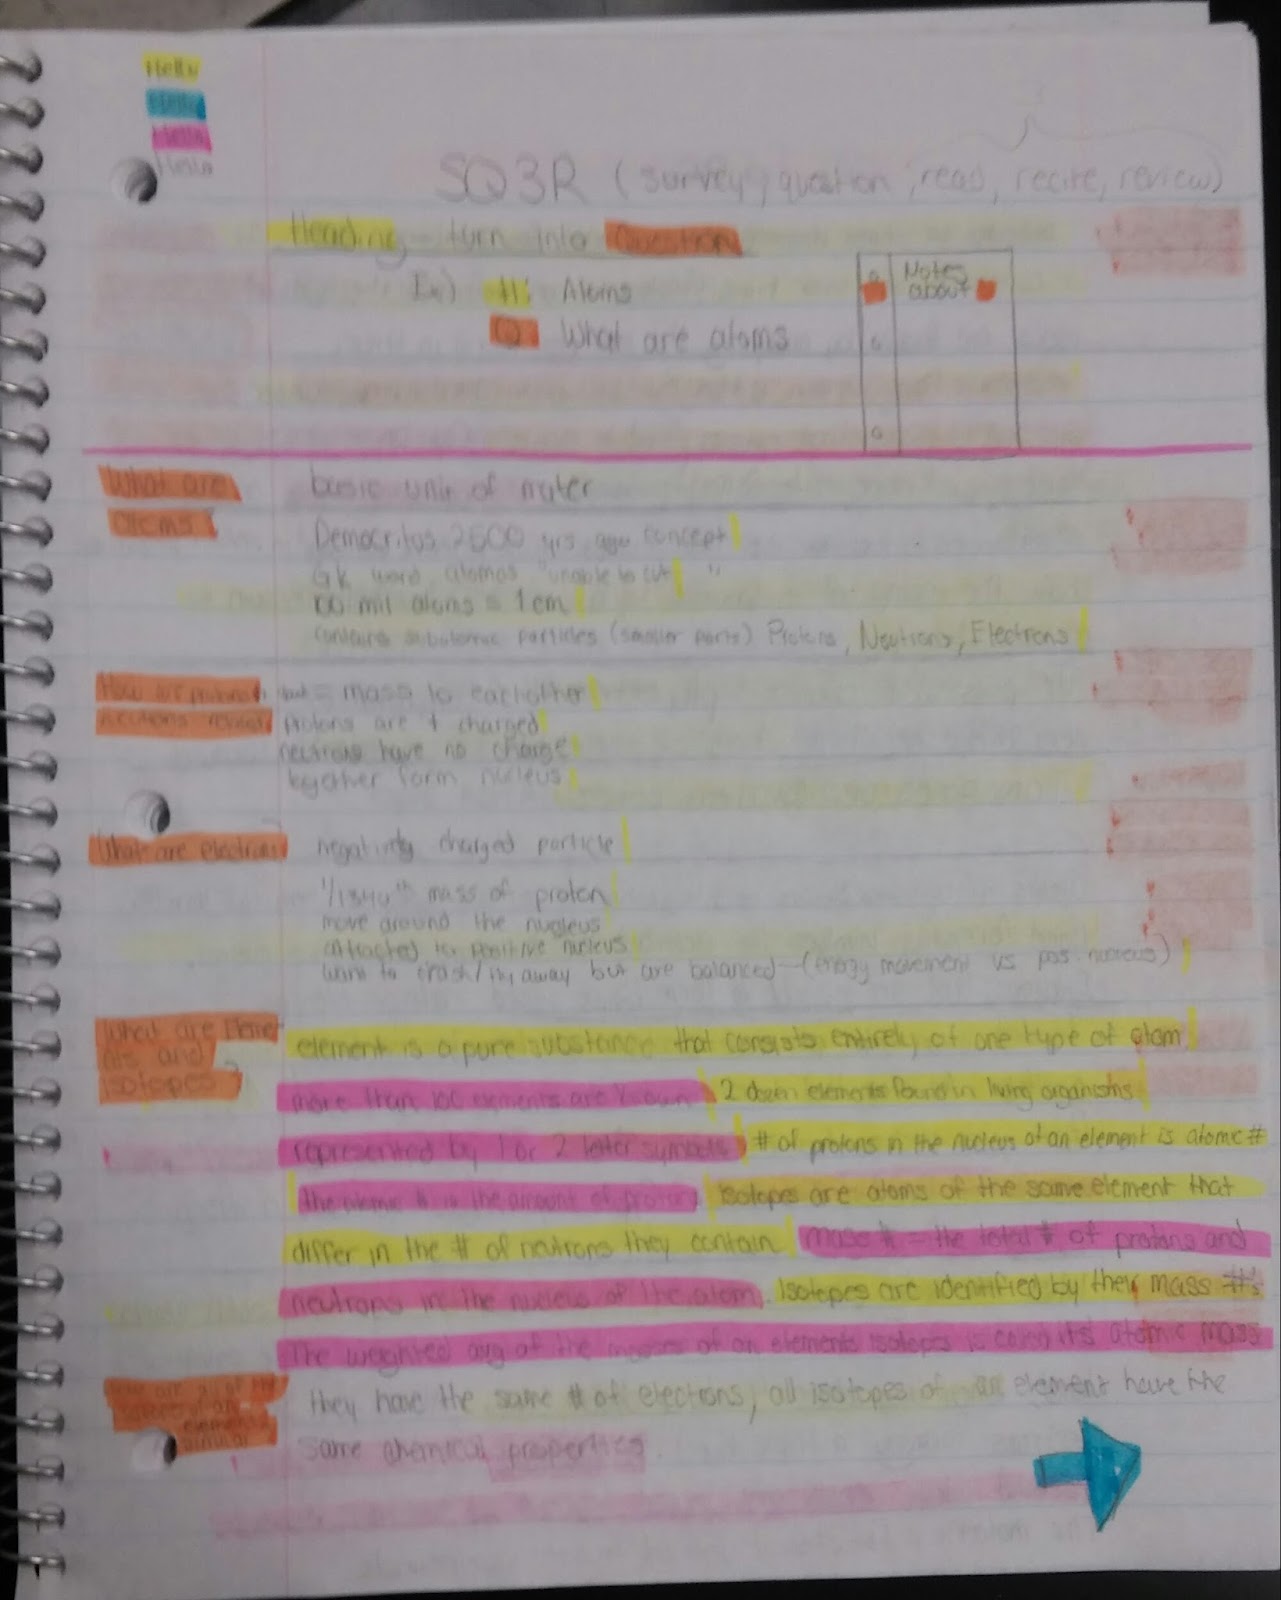 Hello
Hello
Hello
Hello
SQ3R (survey, question, read, recite, review)
Heading - turn into Question
Ex) H: Atoms
Q: What are atoms
Notes
about
What are
atoms?
basic unit of mater
Democritus 2500 yrs ago concept
GK word atomos "unable to cut"
100 mil atoms = 1cm
contains subatomic particles (smaller parts) Protons, Neutrons, Electrons
How are protons &
neutrons
= mass to eachother
protons are + charged
neutrons have no charge
together form nucleus
What are electrons
negativly charged particle
1/1840th mass of proton
move around the nucleus
attracted to positive nucleus
want to crash/fly away but are balanced - (energy movement vs pos. nucleus)
What are Elem
ents and
isotopes?
element is a pure substance that consists entirely of one type of atom
more than 100 elements are known 2 dozen elements found in living organisms
represented by 1 or 2 letter symbols # of protons in the nucleus of an element is atomic #
the atomic # is the amount of protons isotopes are atoms of the same element that
differ in the # of neutrons they contain mass # = the total # of protons and
neutrons in the nucleus of the atom. Isotopes are identified by their mass #'s
The weighted avg of the masses of an elements isotopes is called its atomic mass
of an
elements
similar
they have the same # of electrons, all isotopes of an element have the
same chemical properties.